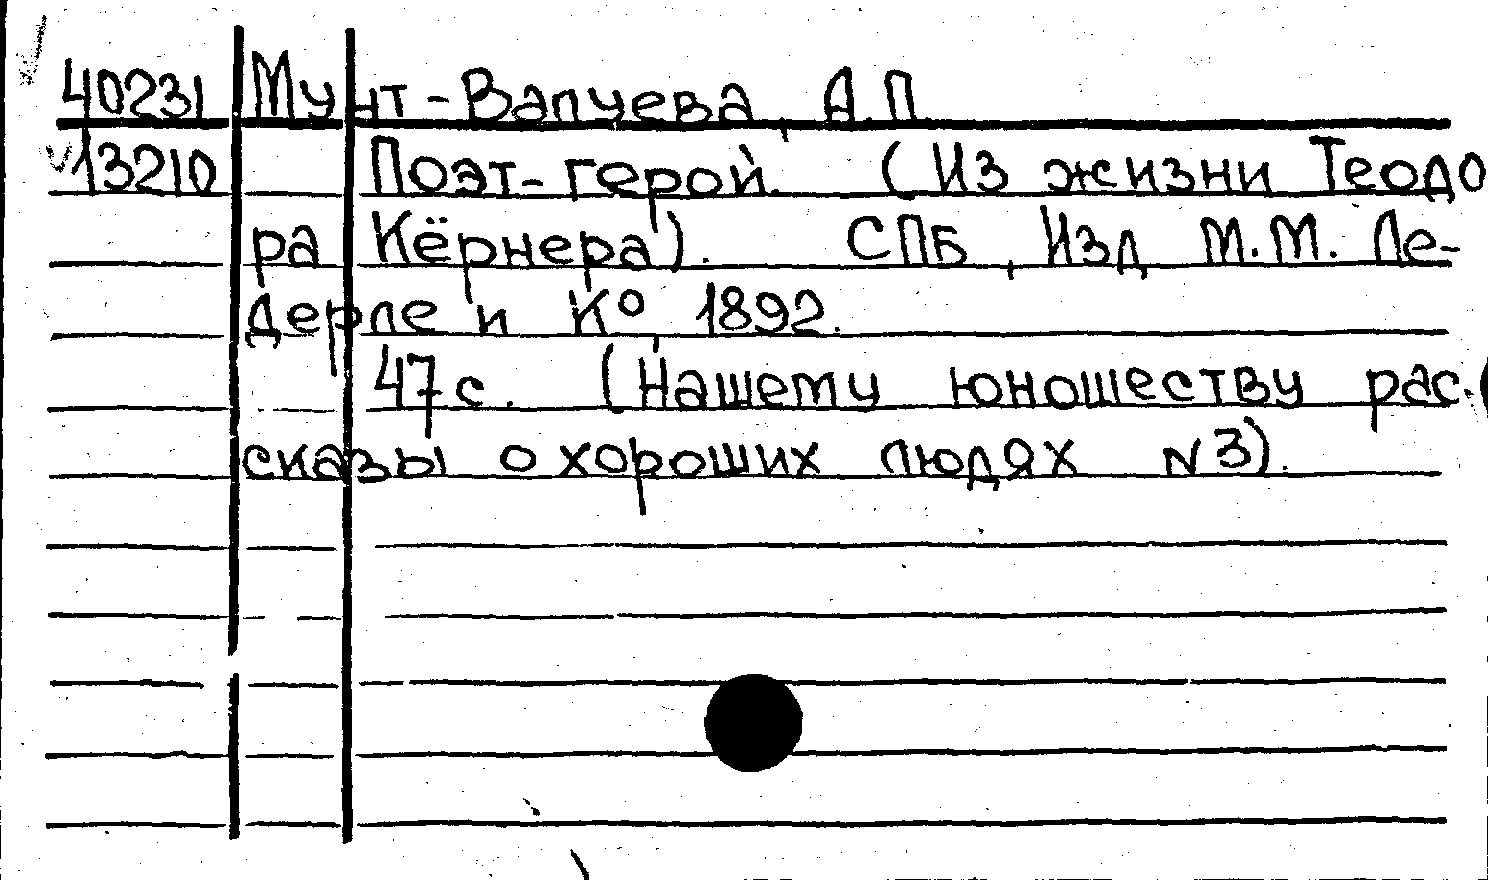 40231 Мунт-Валуева, А.П.
13210 Поэт-герой. (Из жизни Теодо
ра Кёрнера). СПБ, Изд М.М. Ле-
дерле и К° 1892.
47 с. (Нашему юношеству рас.
сказы о хороших людях N 3).